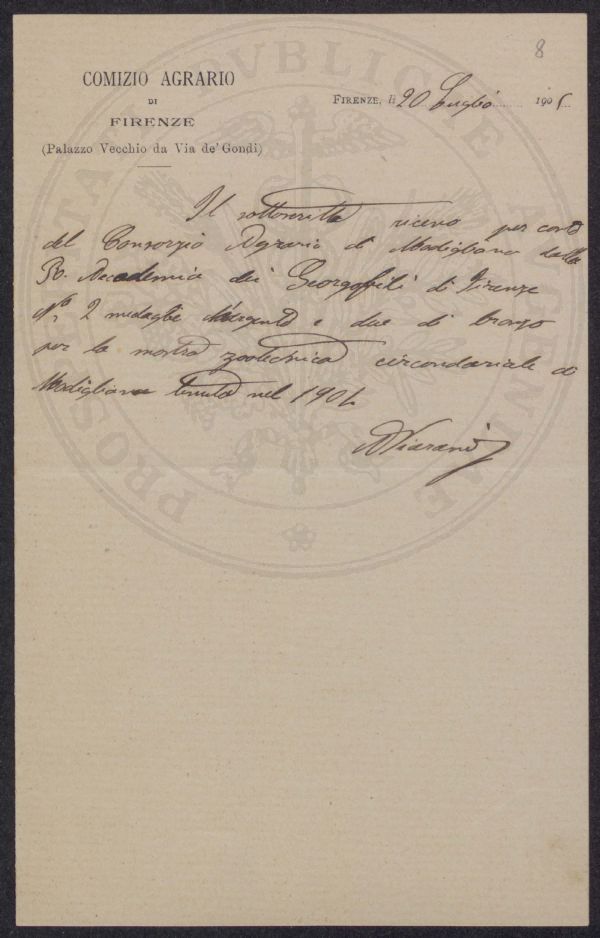 8
COMIZIO AGRARIO
DI
FIRENZE
(Palazzo Vecchio da Via de' Gondi)
FIRENZE, lì 20 Luglio 190
Il sottoscritto riceve per conto
del Consorzio Agrario di Modigliana dalla
R. Accademia dei Georgofili di Firenze
N° 2 medaglie d'argento e due di bronzo
per la mostra zootecnica circondariale a
Modigliana tenuta nel 1904
PROSPERITATI PVBLICAE AVGENDAE